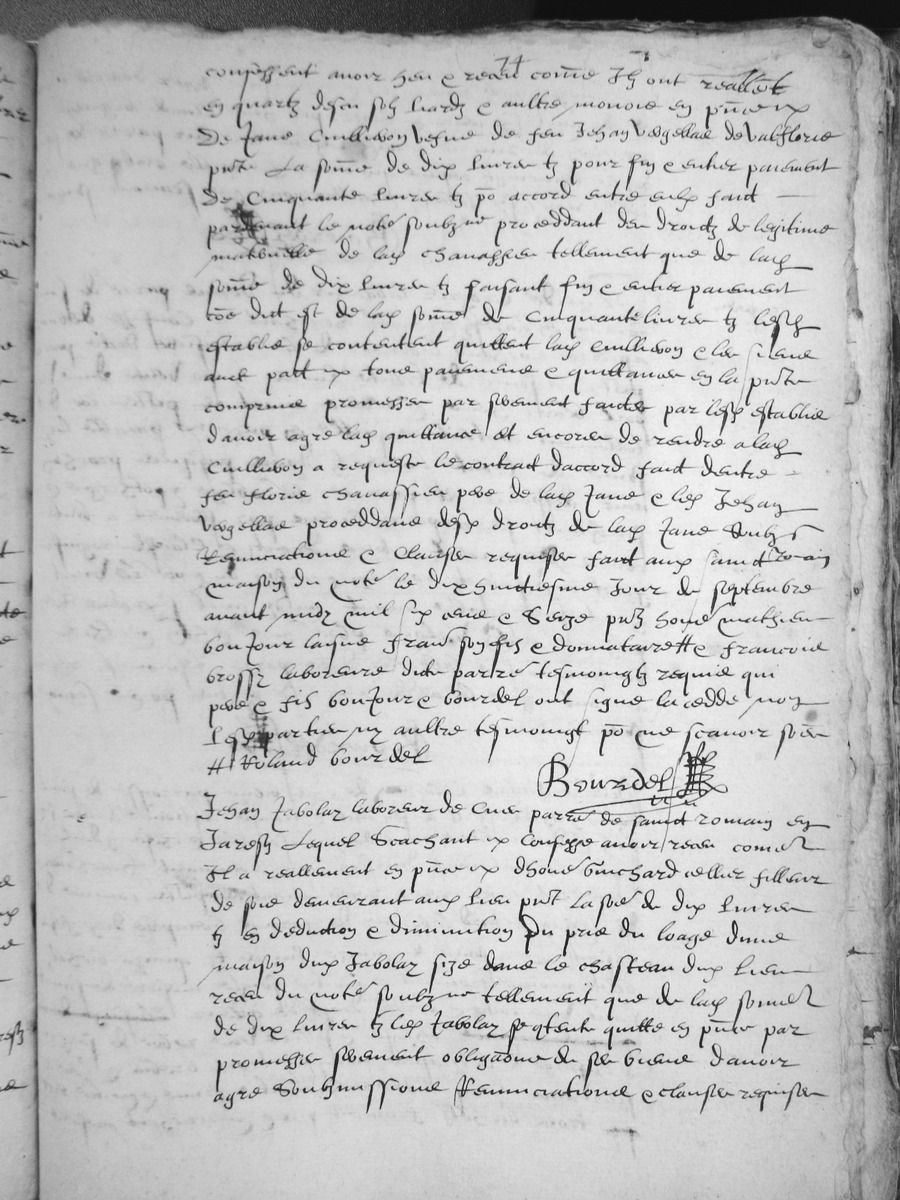 74
confessent avoir heu & receu comē Ilz ont reallemēt
en quartz descu solz liardz & aultre monoie en pn̄ce
De Jane Cuilleron vefue de feu Jehan Vergellas de Valflorie
pn̄te La somē de dix livres tz pour fin & entier paiement
de Cinquante livres tz po accord entre eulx faict
pardevant le note soubzne proceddant des droictz de legitime
maternelle de lad chavassieu tellement que de lad
somē de dix livres tz faisant fin & entier paiement
coe dict est de lad somē de Cinquante livres tz lesd
establis se contentent quittent lad Cuilleron & les siens
avec pact tous paiemens & quittances en la pn̄te
comprins promesses par serement faictes par lesd establis
davoir agre lad quittance et encores de rendre a lad
Cuilleron a requeste le contract daccord faict dentre
feu floris chavassieu pere de lad Jane & led Jehan
Vergellas proceddans desd droictz de lad Jane Soubz
Renunciations & Clauses requises faict aux sainct romain
maison du note le dix huictiesme Jour de septembre
avant midy mil six cens & Seize pn̄tz home mathieu
bonJour laisne fran son fis & donnataire # & francois
brossy laboreurs dicte parre tesmoingtz requis qui
pere & fis bonJour & bourdel ont signe la cedde non
Lesd parties ny aultre tesmoingt po ne scavoir
# Roland bourdel
Bourdel
Jehan Jabolay laboreur de parre de sainct romain en
Jarestz Lequel Scachant Confesse avoir receu come
Il a reallement en pn̄ce dhone Guichard cellier filleur
de soie demeurant aux lieu pn̄t la some de dix livres
tz en deduction & diminution Du pris du loage dune
maison dud Jabolay size dans le chasteau dud lieu
receu du note soubzne tellement que de lad somme
de dix livres tz led Jabolay se qtente quitte en pn̄ce par
promesses serement obligaōns de ses biens davoir
agre Soubzmissions Renunciations & clauses requises